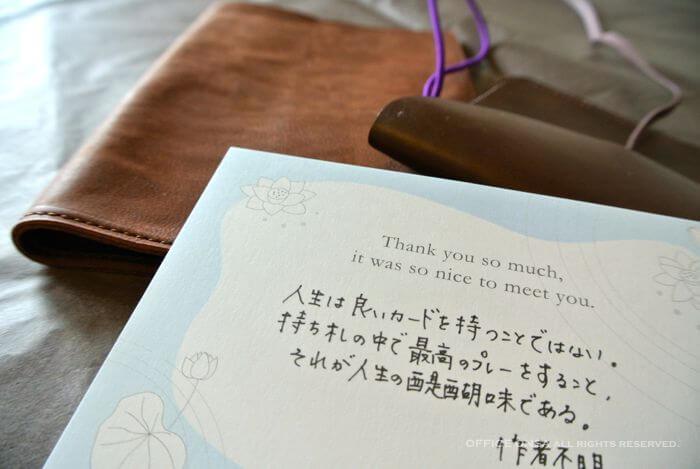 Thank you so much,
it was so nice to meet you.
人生は良いカードを持つことではない.
持ち札の中で最高のプレーをすること,
それが人生の醍醐味である。
作者不明
ALL RIGHTS RESERVED.